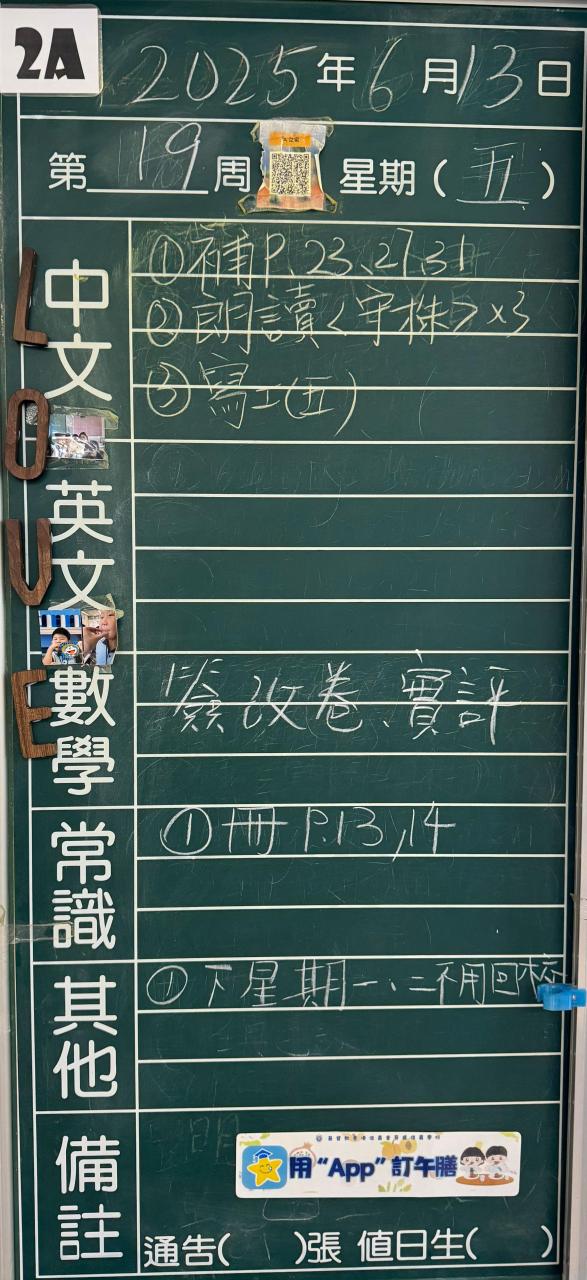 2A
2025年6月13日
第19周 星期(五)
LOVE
中文
①補P.23、27,31
②朗讀<守株>x3
③寫工(五)
英文
數學
簽改卷、實評
常識
①冊P.13,14
其他
①下星期一、二不用回校
備註
用“App”訂午膳
通告( )張 值日生( )